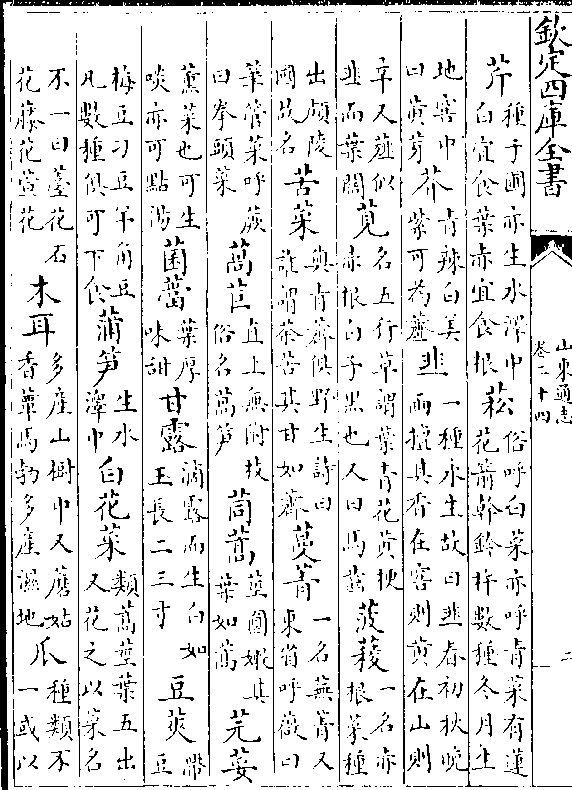 欽定四庫全書
山東通志
卷二十四
二
芹種子園亦生水澤中白宜食葉赤宜食根菘俗呼白菜亦呼青菜有蓮花箭幹鈴杵數種冬月生
地窖中曰黄芽芥青辣白美紫可為虀韭一種永生故曰韭春初秋晚而擅其香在窖則黄在山則
辛又薤似韭而葉闊莧名五行草謂葉青花黄梗赤根白子黒也人曰馬齒菠薐一名赤根菜種
出頗陵國故名苦菜與青薺俱野生詩曰誰謂荼苦其甘如薺蔓菁一名蕪菁又東省呼薇曰
華管菜呼蕨曰拳頭菜萵苣直上無附枝俗名萵笋茼蒿莖圓嫩其葉如蒿芫荽
薫菜也可生啖亦可點湯菌葉厚味甜甘露滴露而生白如玉長二三寸豆莢帶豆
梅豆刀豆羊角豆凡數種俱可下食蒲笋生水澤中白花菜類萵莖葉五出又花之以菜名
不一曰薹花石花藤花萱花木耳多産山樹中又蘑菇香蕈馬勃多産濕地瓜種類不一或以